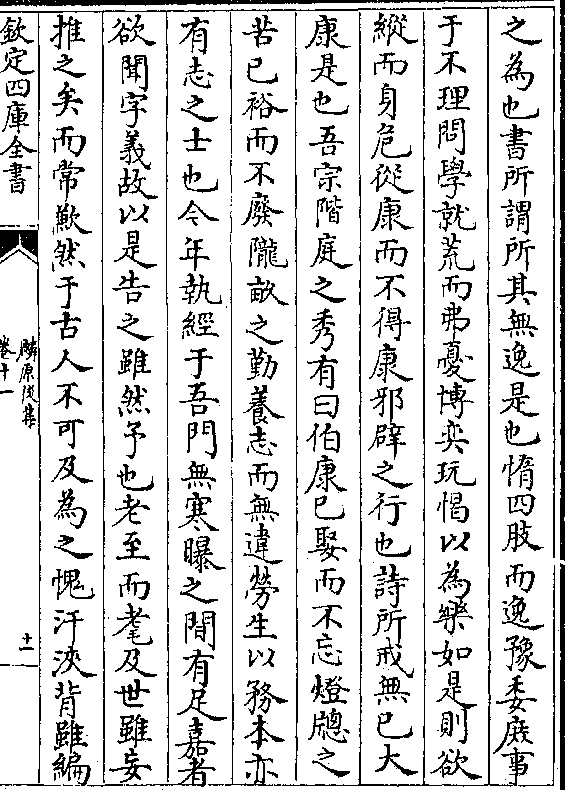 之為也書所謂所其無逸是也惰四肢而逸豫委庶事
于不理問學就荒而弗憂博奕玩愒以為樂如是則欲
縱而身危從康而不得康邪辟之行也詩所戒無已大
康是也吾宗階庭之秀有曰伯康已娶而不忘燈牕之
苦已裕而不廢隴畝之勤養志而無違勞生以務本亦
有志之士也今年執經于吾門無寒曝之間有足嘉者
欲聞字義故以是告之雖然予也老至而耄及世雖妄
推之矣而常歉然于古人不可及為之愧汗浹背雖編
欽定四庫全書
麟原後集
卷十一
十一